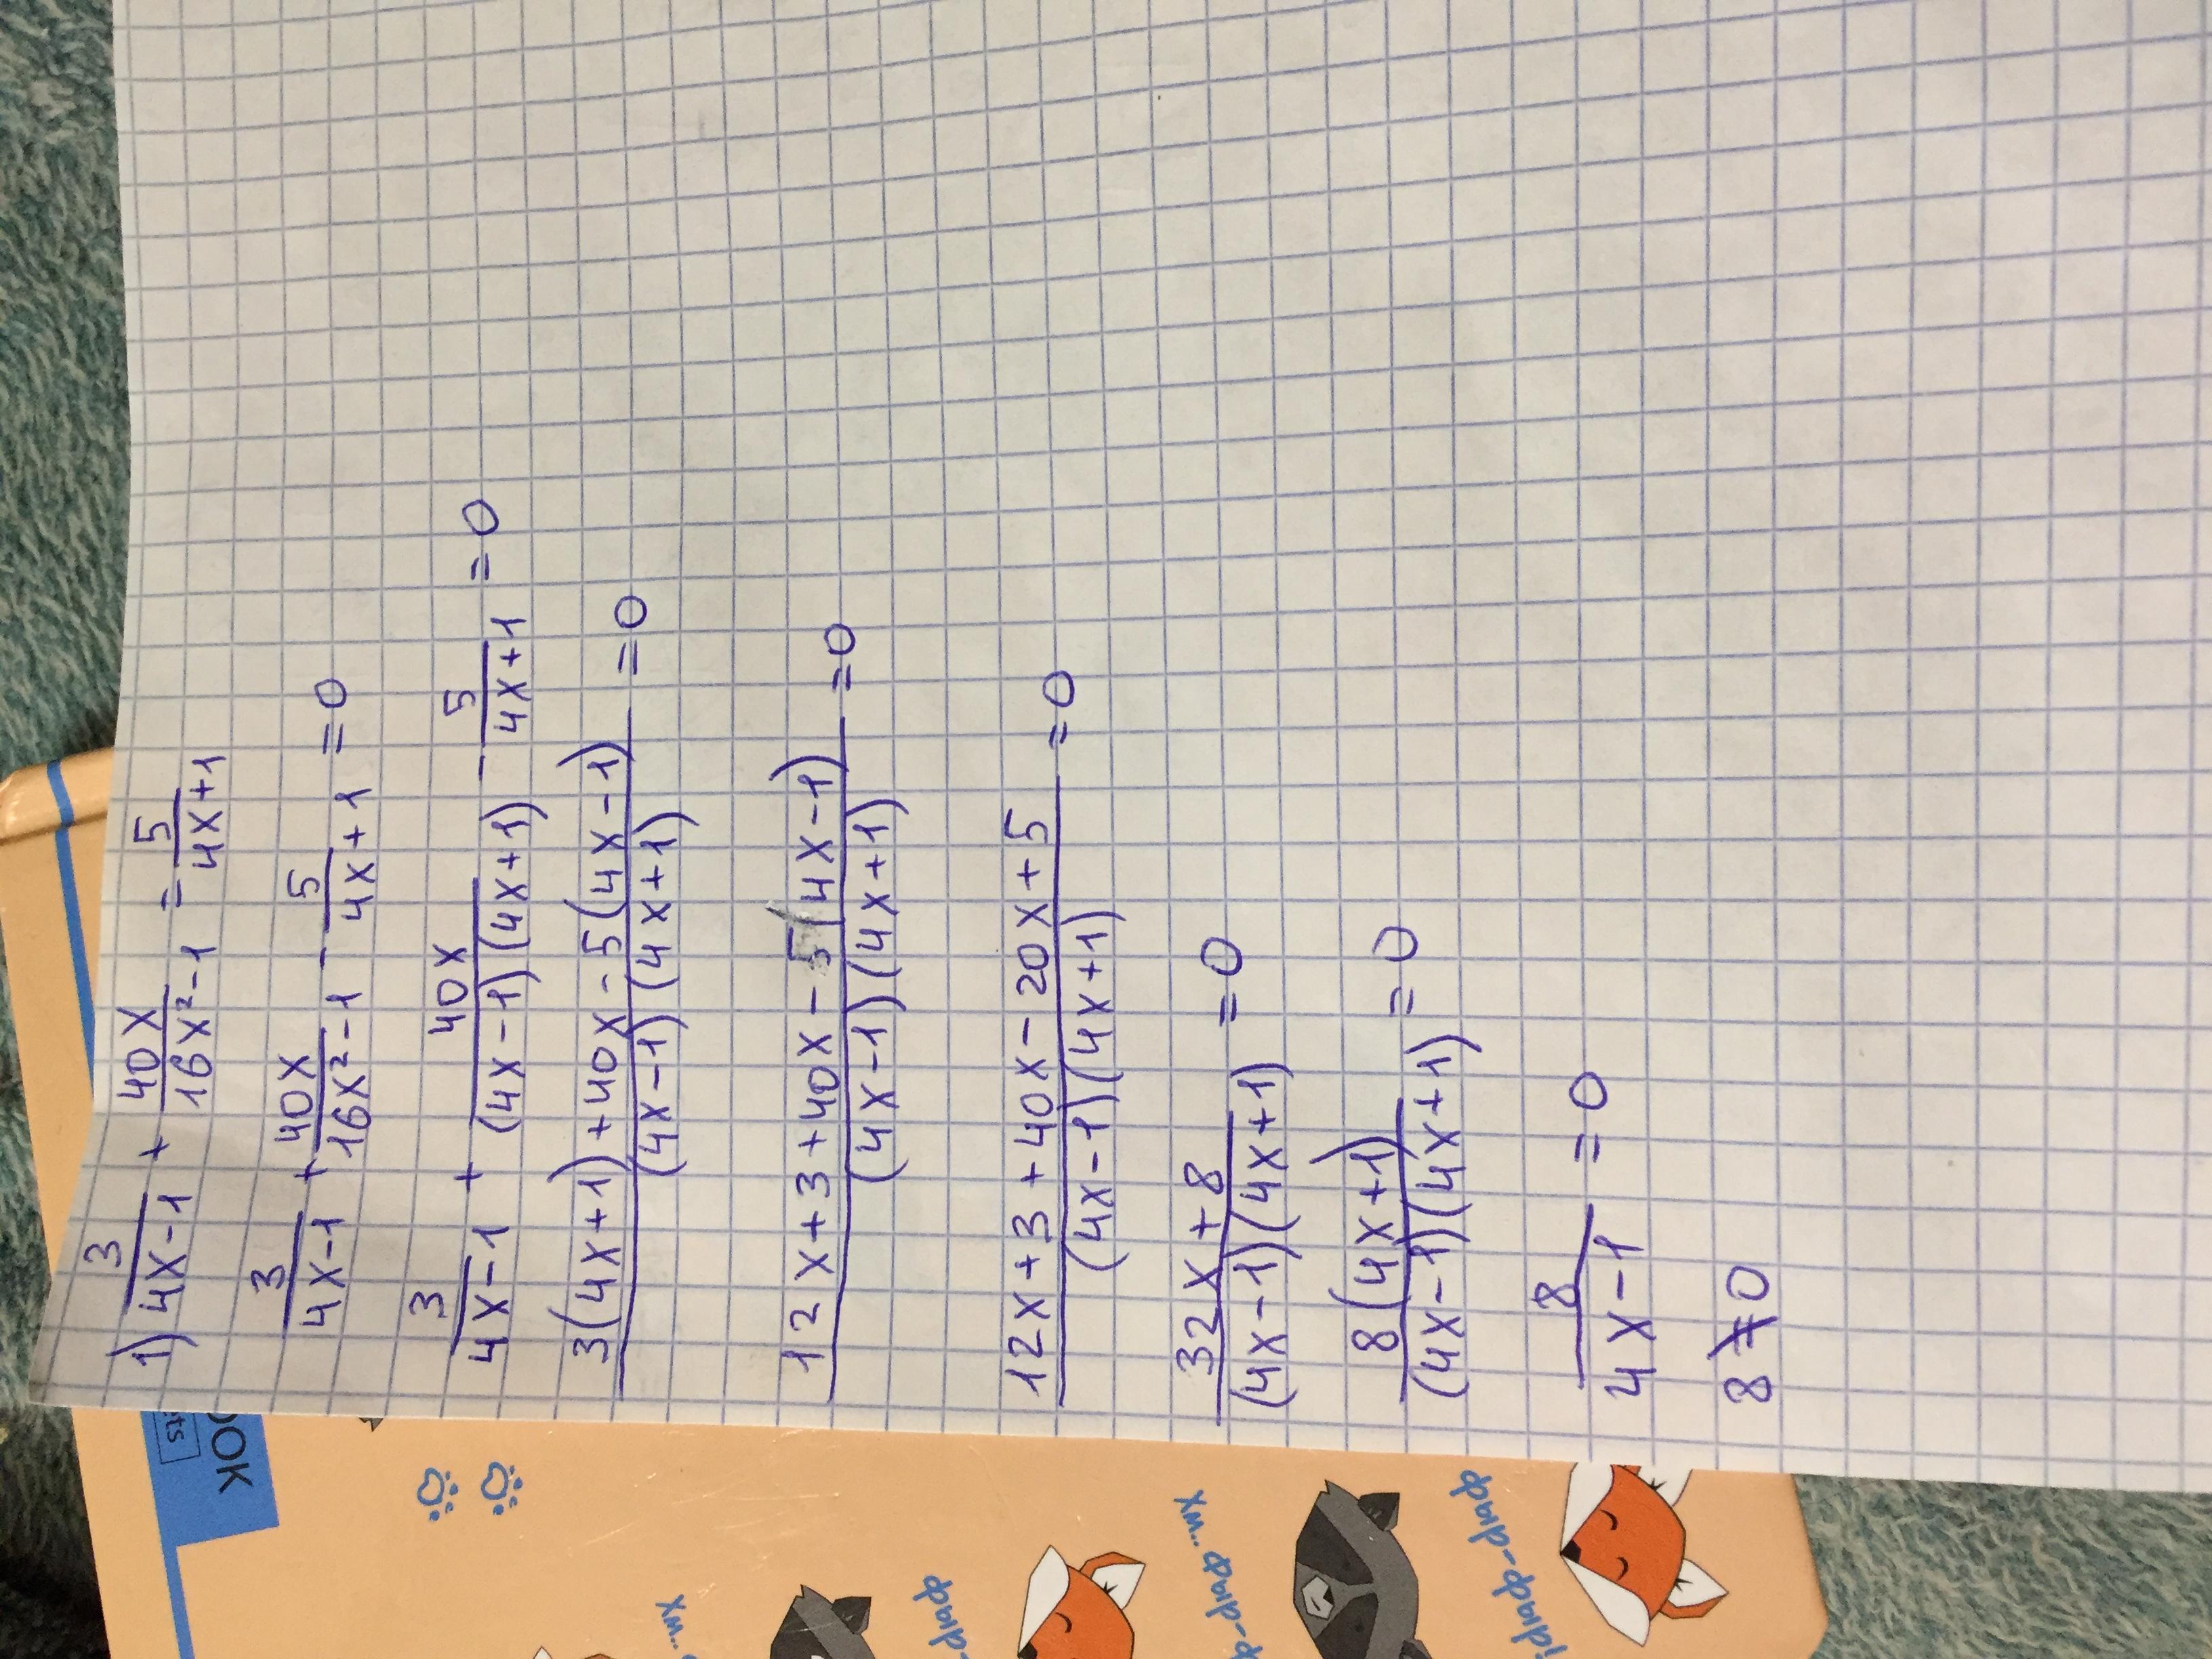 1) 3/(4x-1) + 40x/(16x²-1) = 5/(4x+1)
3/(4x-1) + 40x/(16x²-1) - 5/(4x+1) = 0
3/(4x-1) + 40x/((4x-1)(4x+1)) - 5/(4x+1) = 0
(3(4x+1)+40x-5(4x-1))/((4x-1)(4x+1)) = 0
(12x+3+40x-5(4x-1))/((4x-1)(4x+1)) = 0
(12x+3+40x-20x+5)/((4x-1)(4x+1)) = 0
(32x+8)/((4x-1)(4x+1)) = 0
8(4x+1)/((4x-1)(4x+1)) = 0
8/(4x-1) = 0
8≠0
ООК
ts
хм..
-фыр
р-фыр..хм
фыр-фыр